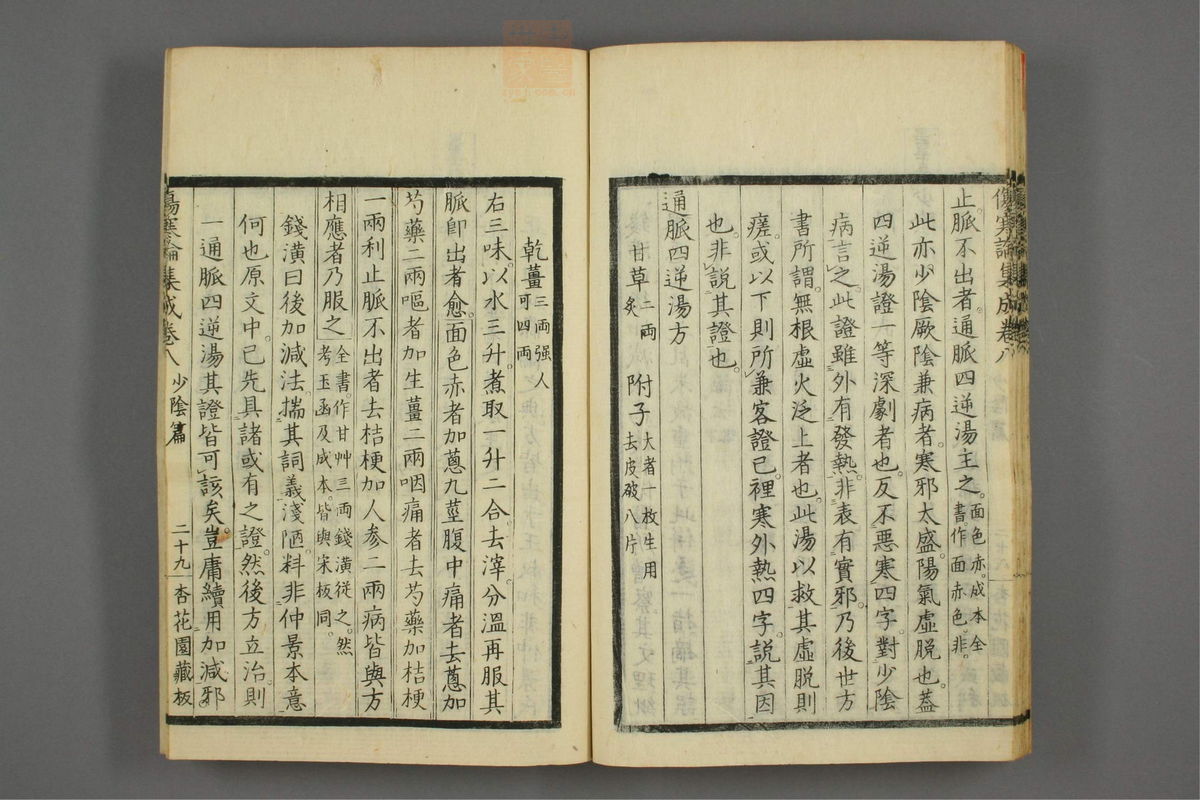 傷寒論集成卷八
止脈不出者。通脈四逆湯主之。面色赤。成本全書。作面赤色。非。
此亦少陰厥陰兼病者。寒邪太盛。陽氣虛脫也。蓋
四逆湯證一等深劇者也。反不惡寒四字。對少陰
病言之。此證雖外有發熱。非表有實邪。乃後世方
書所謂。無根虛火泛上者也。此湯以救其虛脫則
瘥。或以下則所兼客證已。裡寒外熱四字。說其因
也。非說其證也。
通脈四逆湯方
甘草二兩炙 附子大者一枚生用去皮破八片
乾薑三兩强人可四兩
右三味。以水三升。煮取一升二合。去滓。分溫再服其
脈卽出者愈。面色赤者加蔥九莖腹中痛者去蔥加
芍藥二兩嘔者加生薑二兩咽痛者去芍藥加桔梗
一兩利止脈不出者去桔梗加人参二兩病皆與方
相應者乃服之全書。作甘艸三兩錢潢從之。然考玉函及成本。皆與宋板同。
錢潢曰後加減法。揣其詞義淺陋。料非仲景本意
何也。原文中。已先具諸或有之證。然後方立治。則
一通脈四逆湯其證皆可該矣。豈庸續用加減邪。
傷寒論集成卷八 少陰篇 二十九 杏花園藏板